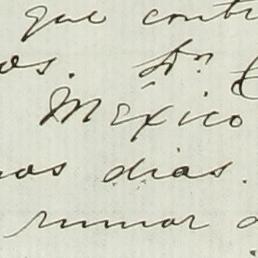 que contr
os. Dn
México
nos dias.
rumor d